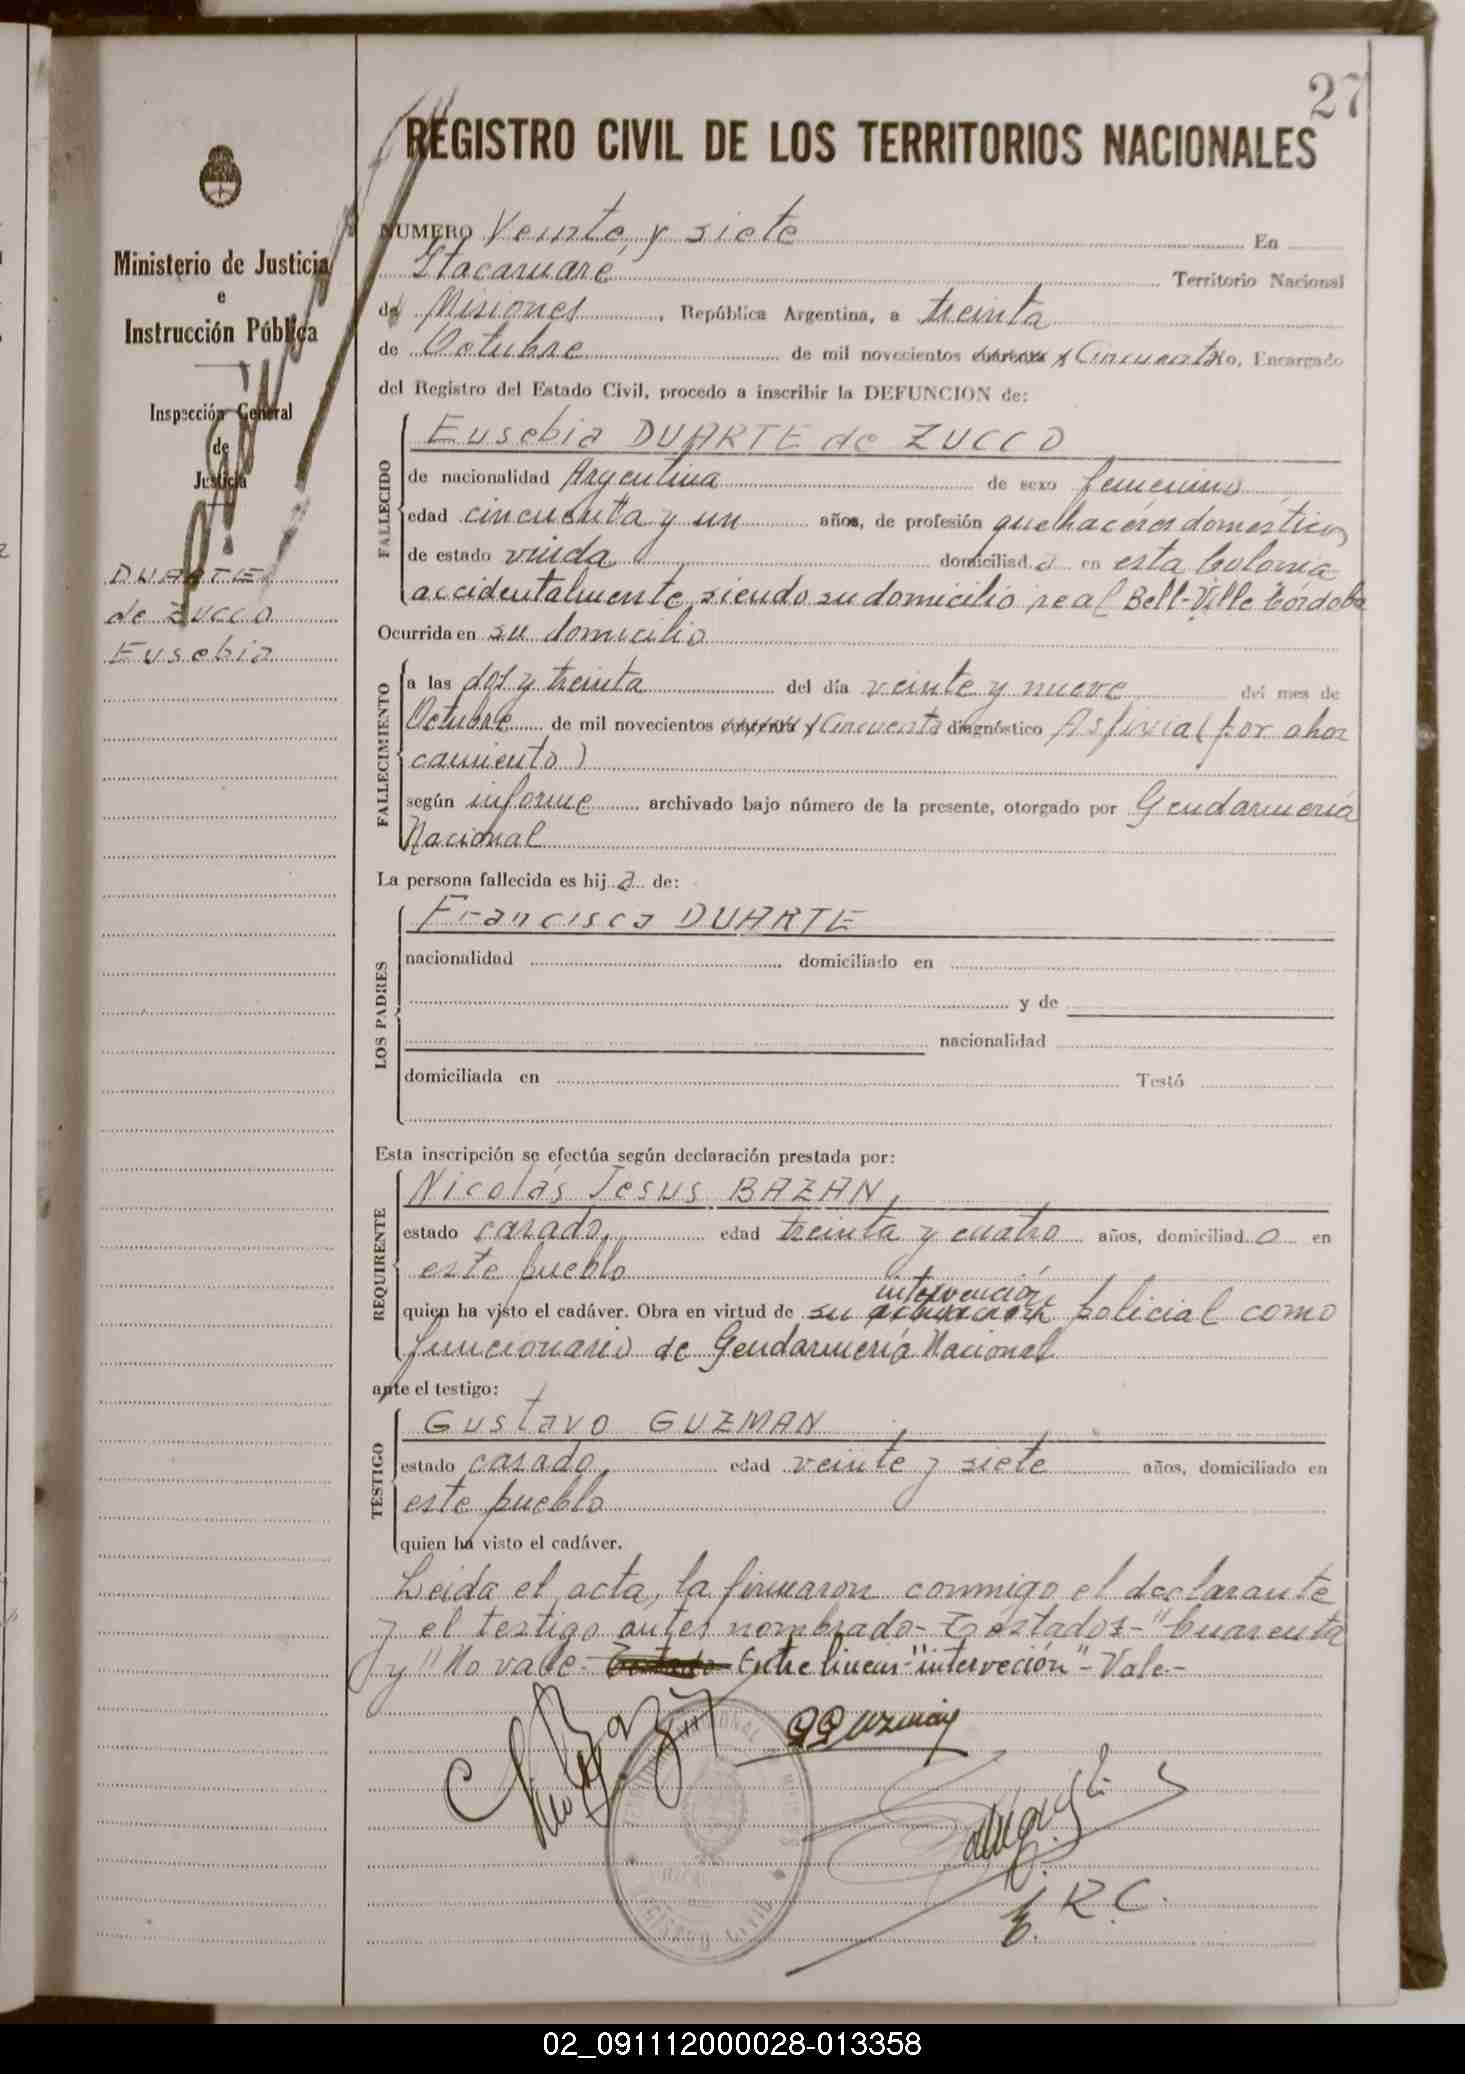 27
REGISTRO CIVIL DE LOS TERRITORIOS NACIONALES
Ministerio de Justicia
e
Instrucción Pública
Inspección General
de
Justicia
DUARTE
de ZUCCO
Eusebia
NUMERO Veinte y siete En
Itacaruaré Territorio Nacional
de Misiones, República Argentina, a treinta
de Octubre de mil novecientos cuarenta y Cincuenta Yo, Encargado
del Registro del Estado Civil, procedo a inscribir la DEFUNCION de:
FALLECIDO
Eusebia DUARTE de ZUCCO
de nacionalidad Argentina de sexo femenino
edad cincuenta y un años, de profesión quehaceres domesticos
de estado viuda domiciliad a en esta Colonia
accidentalmente, siendo su domicilio real Bell-Ville Córdoba
Ocurrida en su domicilio
FALLECIMIENTO
a las dos y treinta del día veinte y nueve del mes de
Octubre de mil novecientos cuarenta y Cincuenta diagnóstico Asfixia (por ahor
camiento)
según informe archivado bajo número de la presente, otorgado por Gendarmería
Nacional
La persona fallecida es hij a de:
LOS PADRES
Francisca DUARTE
nacionalidad domiciliado en
y de
nacionalidad
domiciliada en Testó
Esta inscripción se efectúa según declaración prestada por:
REQUIRENTE
Nicolás Jesus BAZAN,
estado casado, edad treinta y cuatro años, domiciliad o en
este pueblo
intervención
quien ha visto el cadáver. Obra en virtud de su policial como
funcionario de Gendarmería Nacional
ante el testigo:
TESTIGO
Gustavo GUZMAN
estado casado, edad veinte y siete años, domiciliado en
este pueblo
quien ha visto el cadáver.
Leida el acta, la firmaron conmigo el declarante
y el testigo antes nombrado- Testados- "Cuarenta
y" No vale- Entre lineas-"interveción"- Vale-
GGuzmán
E. R. C.
REGISTRO CIVIL
02_091112000028-013358